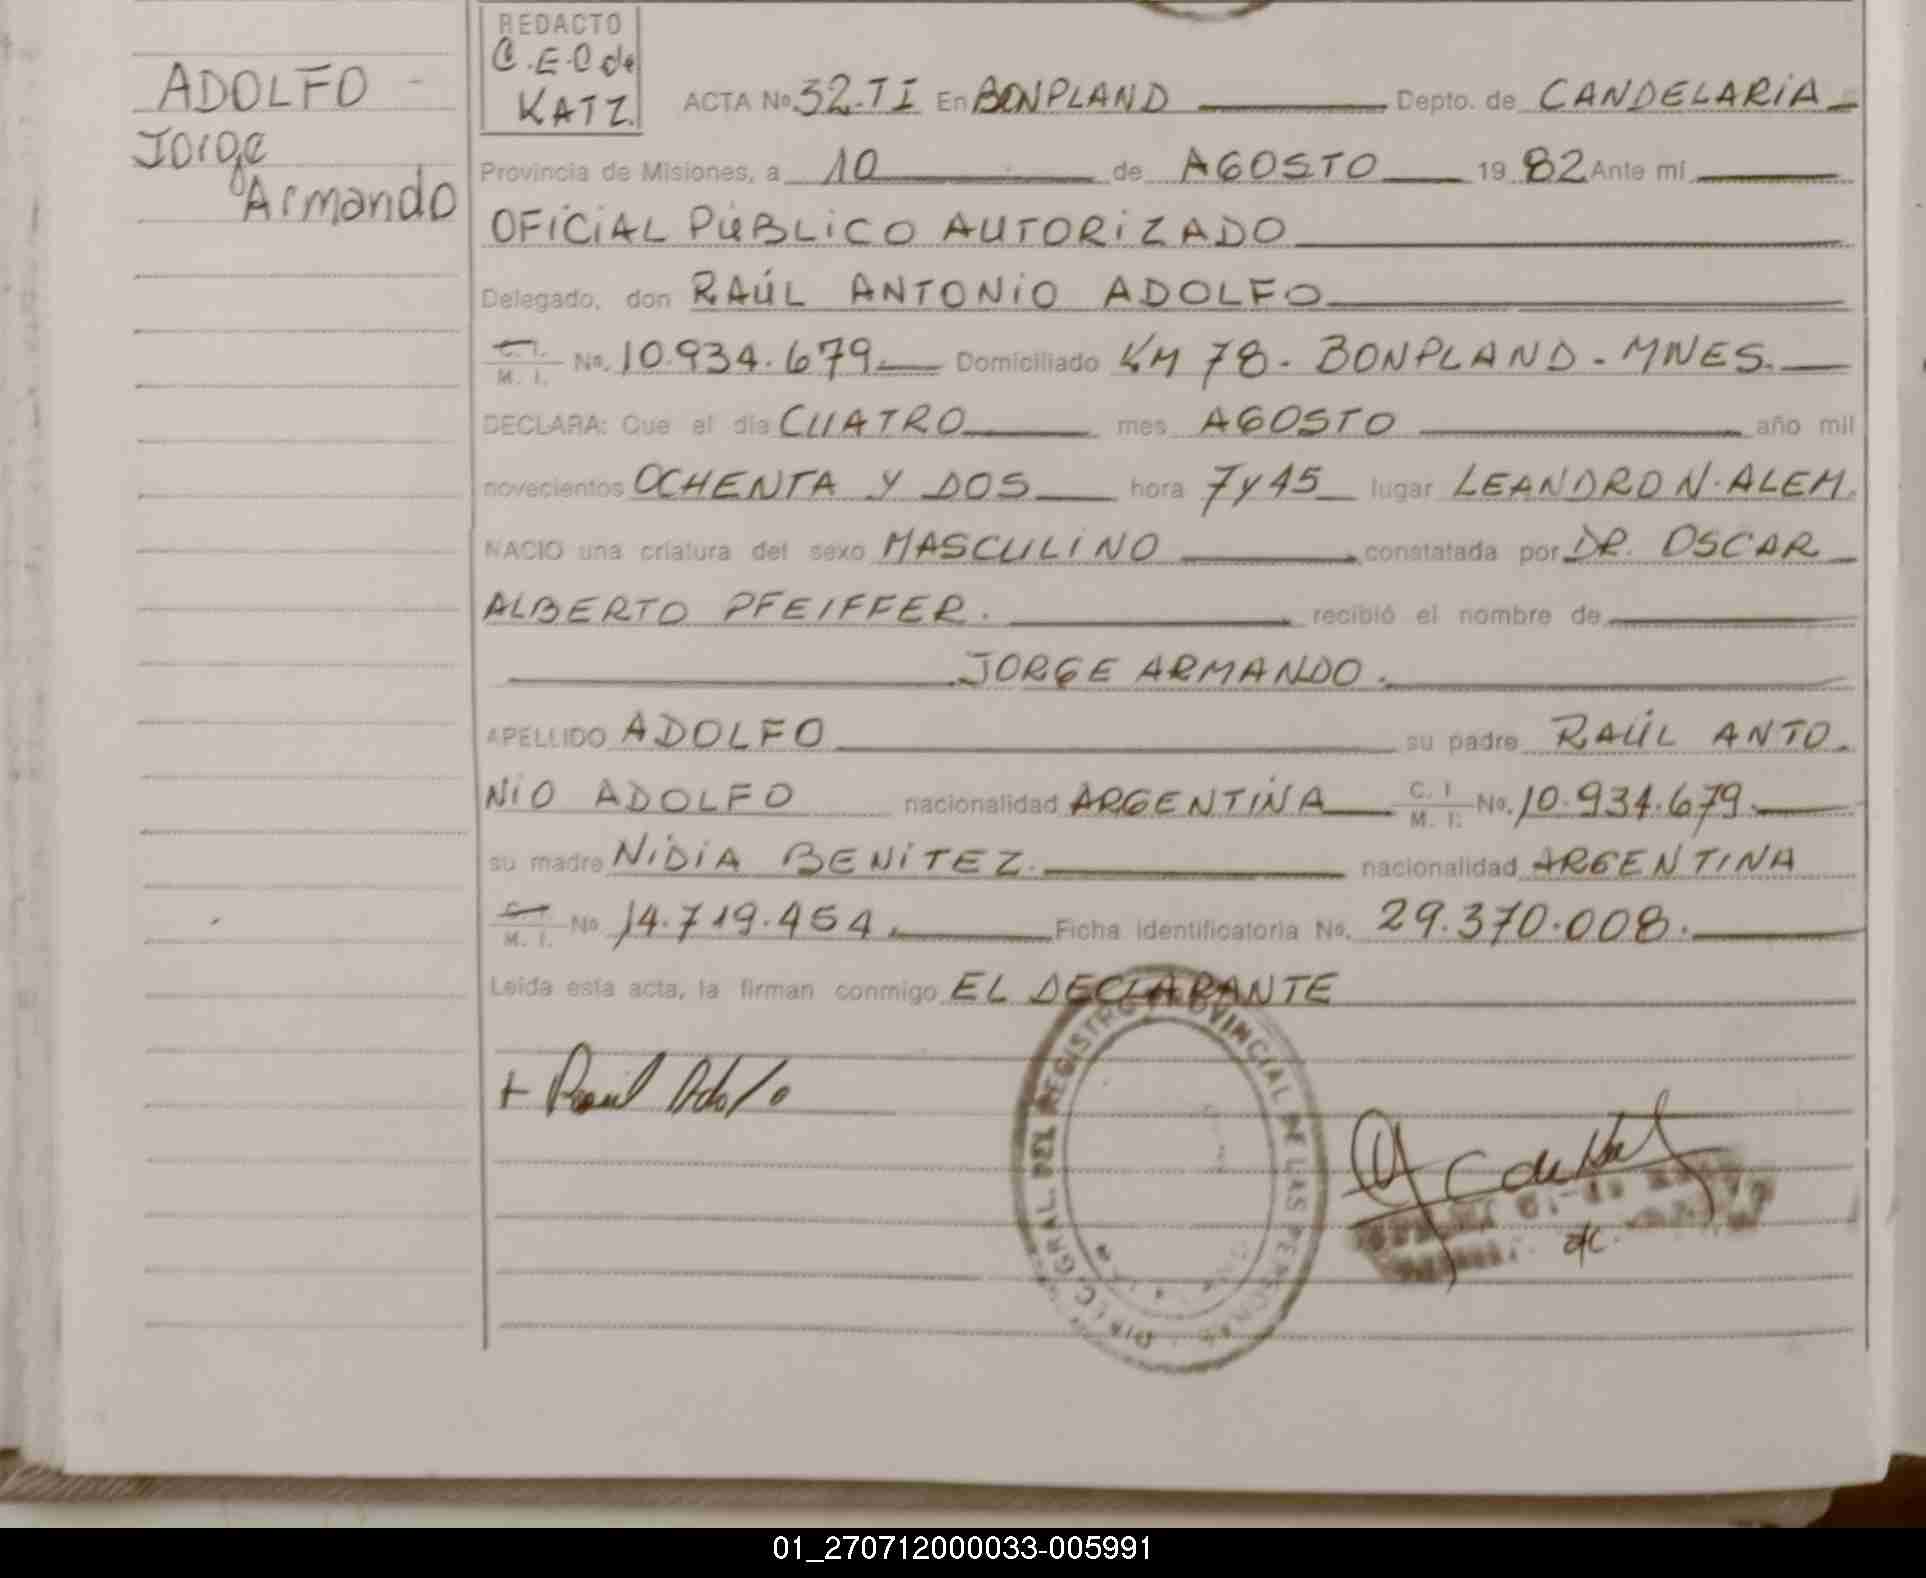 ADOLFO -
Jorge
Armando
REDACTO
C.E.O de
KATZ.
ACTA No. 32.TI En BONPLAND Depto. de CANDELARIA
Provincia de Misiones, a 10 de AGOSTO 19 82 Ante mí
OFICIAL PÚBLICO AUTORIZADO
Delegado, don RAÚL ANTONIO ADOLFO
C. I. M. I. No. 10.934.679. Domiciliado KM 78 - BONPLAND - MNES.
DECLARA: Que el día CUATRO mes AGOSTO año mil
novecientos OCHENTA Y DOS hora 7 y 45 lugar LEANDRO N. ALEM.
NACIO una criatura del sexo MASCULINO constatada por DR. OSCAR
ALBERTO PFEIFFER. recibió el nombre de
JORGE ARMANDO.
APELLIDO ADOLFO su padre RAÚL ANTO
NIO ADOLFO nacionalidad ARGENTINA C. I. M. I. No. 10.934.679.
su madre NIDIA BENITEZ. nacionalidad ARGENTINA
C. I. M. I. No 14.719.454. Ficha identificatoria No. 29.370.008.
Leída esta acta, la firman conmigo EL DECLARANTE
+ Raúl Adolfo
DIREC. GRAL. DEL REGISTRO PROVINCIAL DE LAS PERSONAS
01_270712000033-005991